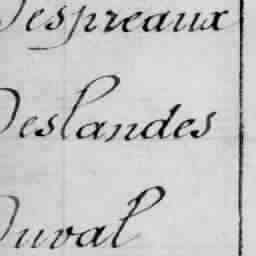 Despreaux
Deslandes
Duval